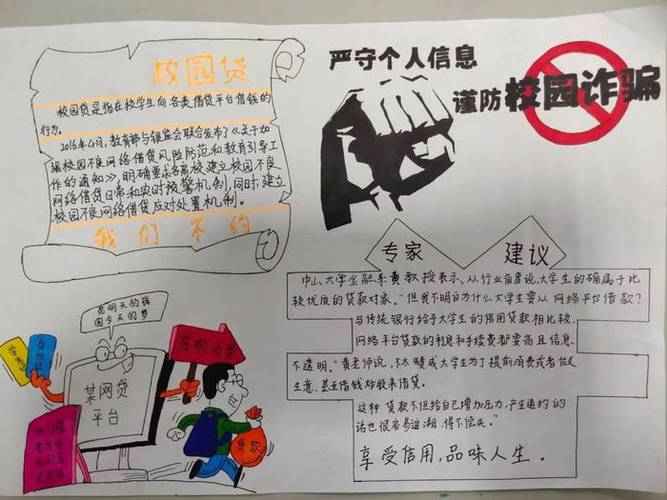 校园贷
校园贷是指在校学生向各类借贷平台借钱的
行为。
2016年4月,教育部与银监会联合发布了《关于加
强校园不良网络借贷风险防范和教育引导工
作的通知》,明确要求各高校建立校园不良
网络借贷日常和实时预警机制,同时,建立
校园不良网络借贷应对处置机制。
我们不约
严守个人信息
谨防校园诈骗
专家 建议
中山大学金融系黄教授表示、从行业角度说,大学生的确属于比
较优质的贷款对象。"但我不明白为什么大学生要从网络平台借款?
与传统银行给予大学生的信用贷款相比较,
网络平台贷款的利息和手续费都要高且信息
不透明。"黄老师说,不太赞成大学生为了提前消费或者做
生意,甚至借钱炒股来借贷。
这种贷款不但给自己增加压力,产生违约的
话也很容易追溯,得不偿失。"
享受信用,品味人生。
花明天的钱
圆今天的梦
身份证
某网贷
平台
贷款